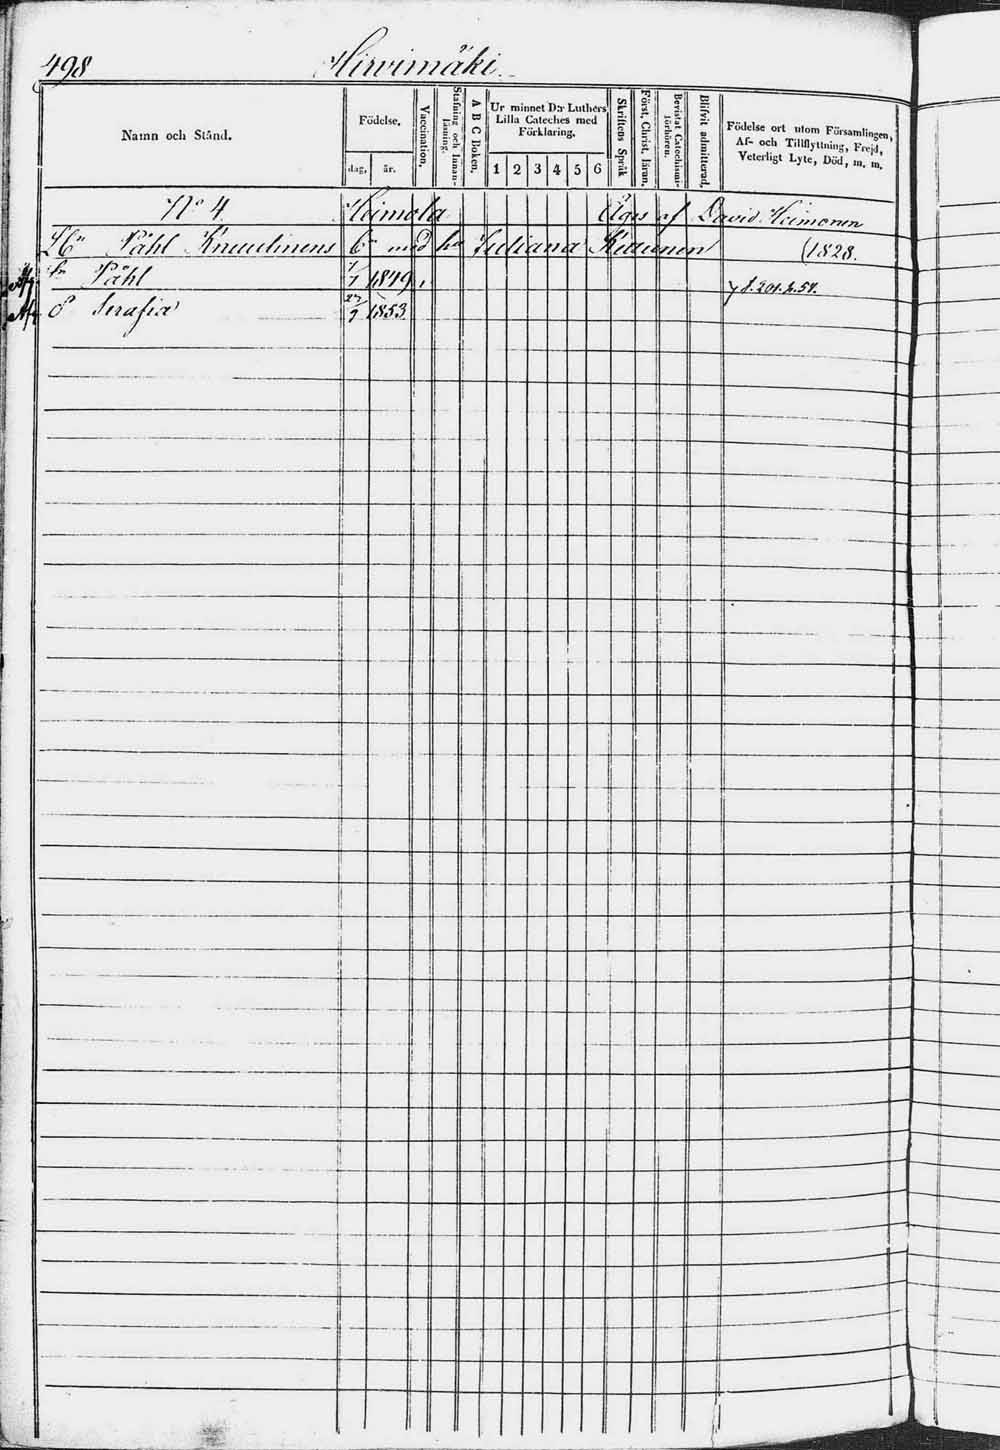 498 Hirvimäki
Namn och Stånd.
Födelse.
dag. år.
Vaccination.
Stafning och Innanläsning.
A B C Boken.
Ur minnet D:r Luthers
Lilla Cateches med
Förklaring.
1 2 3 4 5 6
Skriftens Språk
Först. Christ. läran.
Bevistat Catechismi-
förhören.
Blifvit admitterad.
Födelse ort utom Församlingen,
Af- och Tillflyttning, Frejd,
Veterligt Lyte, Död, m. m.
No 4 Heimola Äges af David Heimonen
Påhl Knuutinens med Juliana Kiaunen (1828.
Påhl 1849
Serafia 27/7 1853